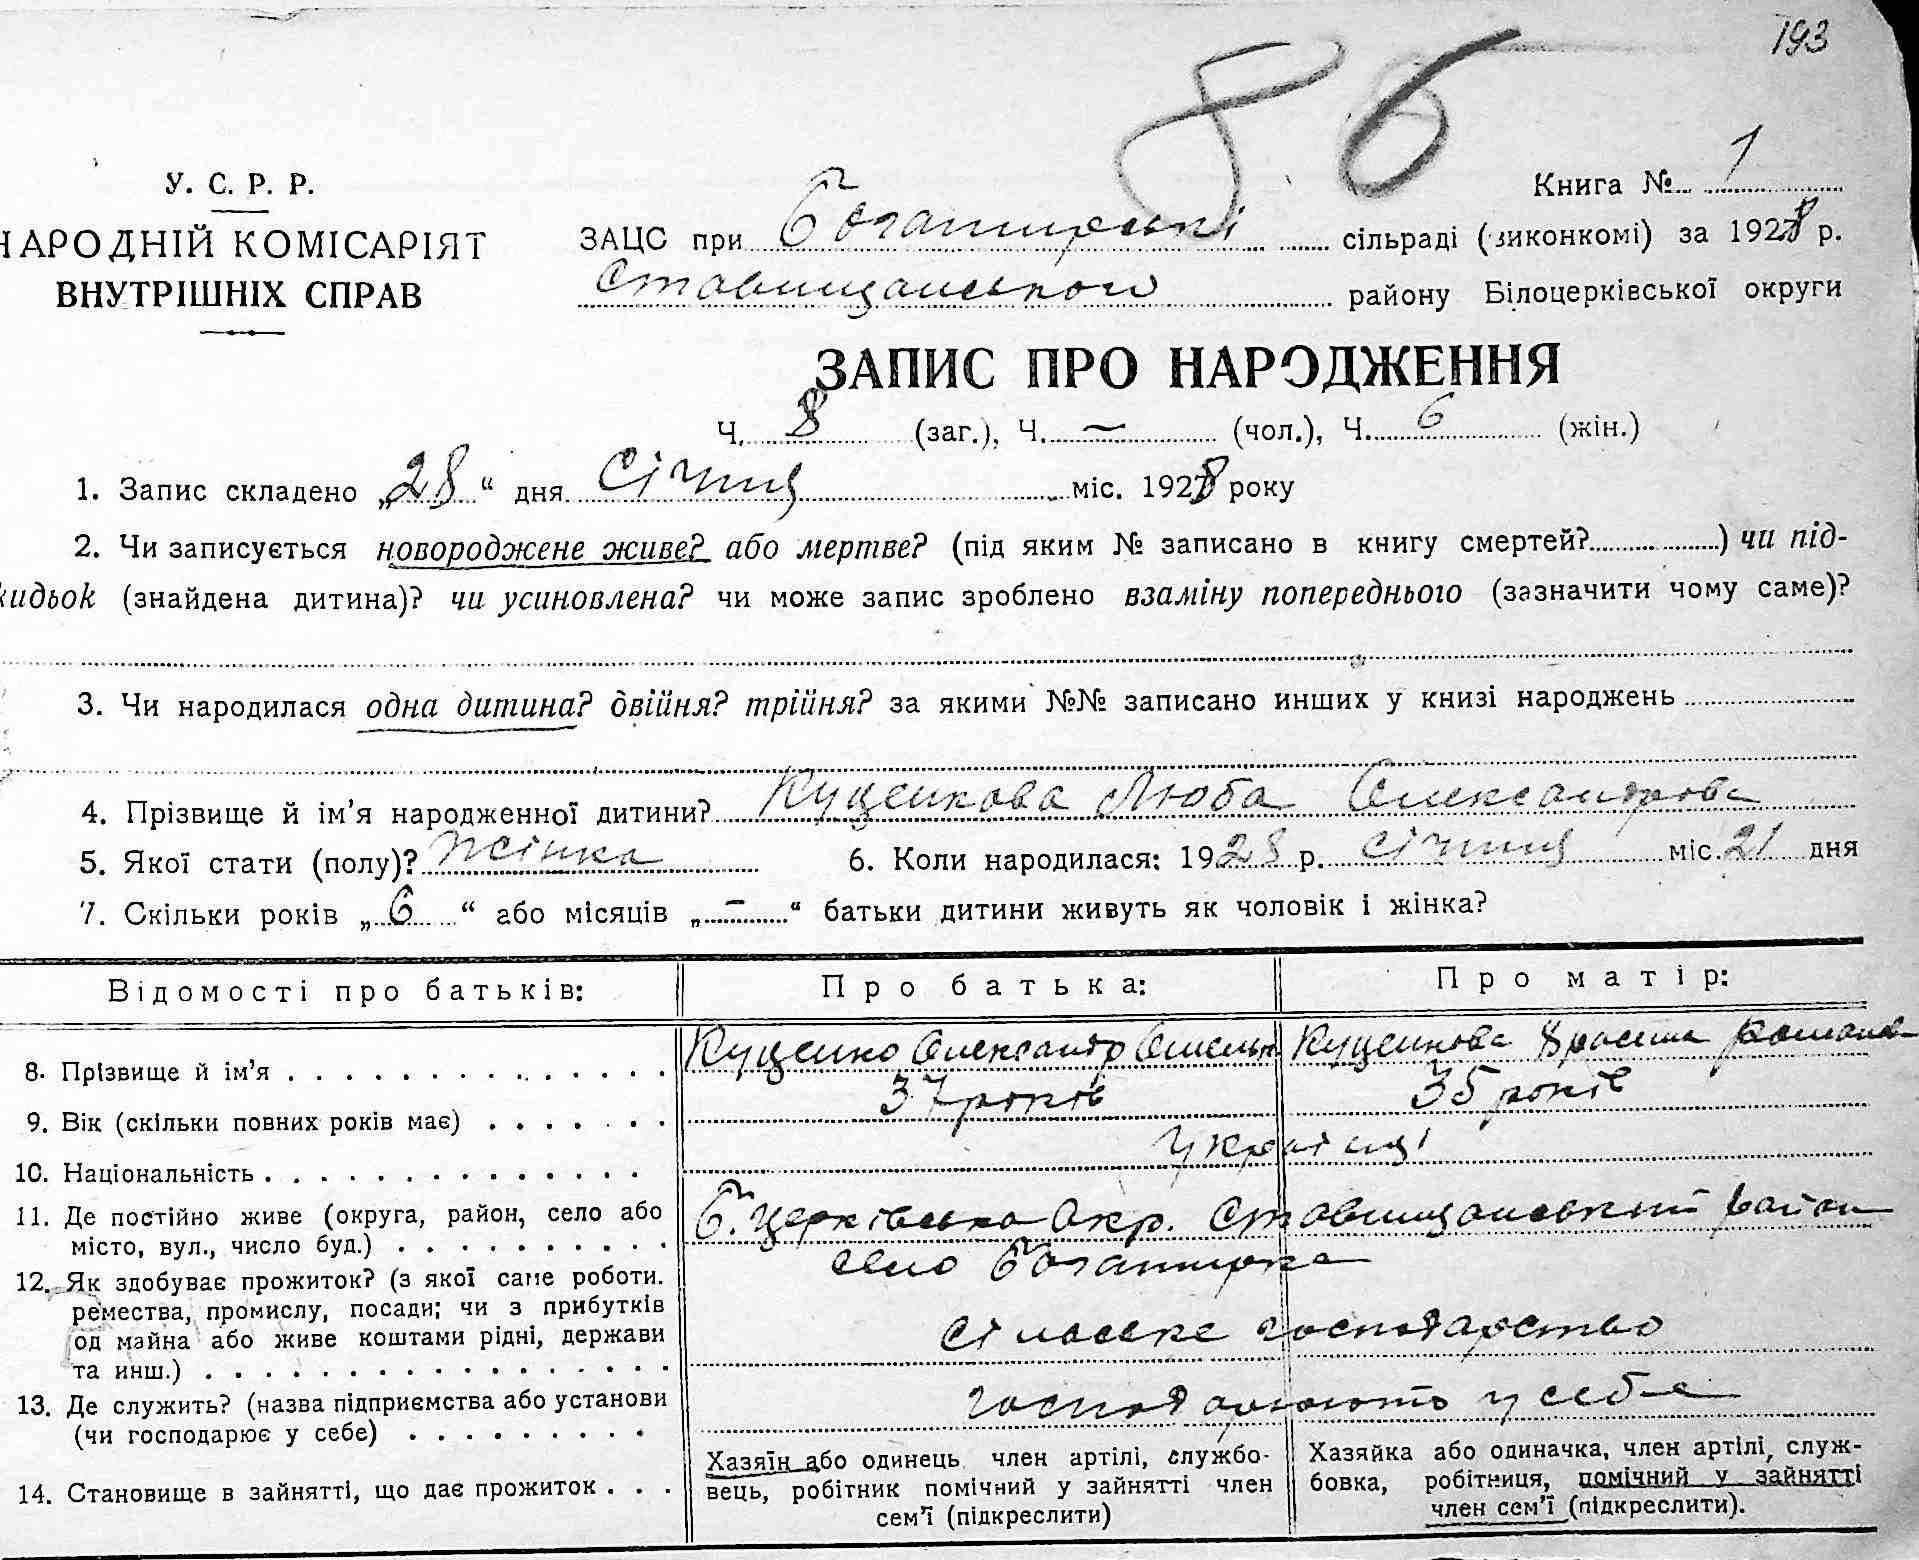 193
86
У. С. Р. Р.
НАРОДНІЙ КОМІСАРІЯТ
ВНУТРІШНІХ СПРАВ
Книга № 1
ЗАЦС при Богатирські сільраді (виконкомі) за 1928 р.
Ставищанського району Білоцерківської округи
ЗАПИС ПРО НАРОДЖЕННЯ
Ч. 8 (заг.), Ч. — (чол.), Ч. 6 (жін.)
1. Запис складено „28“ дня Січня міс. 1928 року
2. Чи записується новороджене живе? або мертве? (під яким № записано в книгу смертей?) чи під-
кидьок (знайдена дитина)? чи усиновлена? чи може запис зроблено взаміну попереднього (зазначити чому саме)?
3. Чи народилася одна дитина? двійня? трійня? за якими №№ записано инших у книзі народжень
4. Прізвище й ім’я народженної дитини? Куценкова Люба Олександрова
5. Якої стати (полу)? Жінка 6. Коли народилася: 1928 р. січня міс. 21 дня
7. Скільки років „6“ або місяців „—“ батьки дитини живуть як чоловік і жінка?
Відомості про батьків: Про батька: Про матір:
8. Прізвище й ім’я Куценко Олександр Омельк Куценкова Романов
9. Вік (скільки повних років має) 37 років 35 років
10. Національність Українці
11. Де постійно живе (округа, район, село або Б. Церківська Окр. Ставищанський район
місто, вул., число буд.) село Богатирка
12. Як здобуває прожиток? (з якої саме роботи.
ремества, промислу, посади; чи з прибутків
од майна або живе коштами рідні, держави сільське господарство
та инш.)
13. Де служить? (назва підприємства або установи господарюють у себе
(чи господарює у себе)
14. Становище в зайнятті, що дає прожиток
Хазяїн або одинець член артілі, службо-
вець, робітник помічний у зайнятті член
сем’ї (підкреслити)
Хазяйка або одиначка, член артілі, служ-
бовка, робітниця, помічний у зайнятті
член сем’ї (підкреслити).